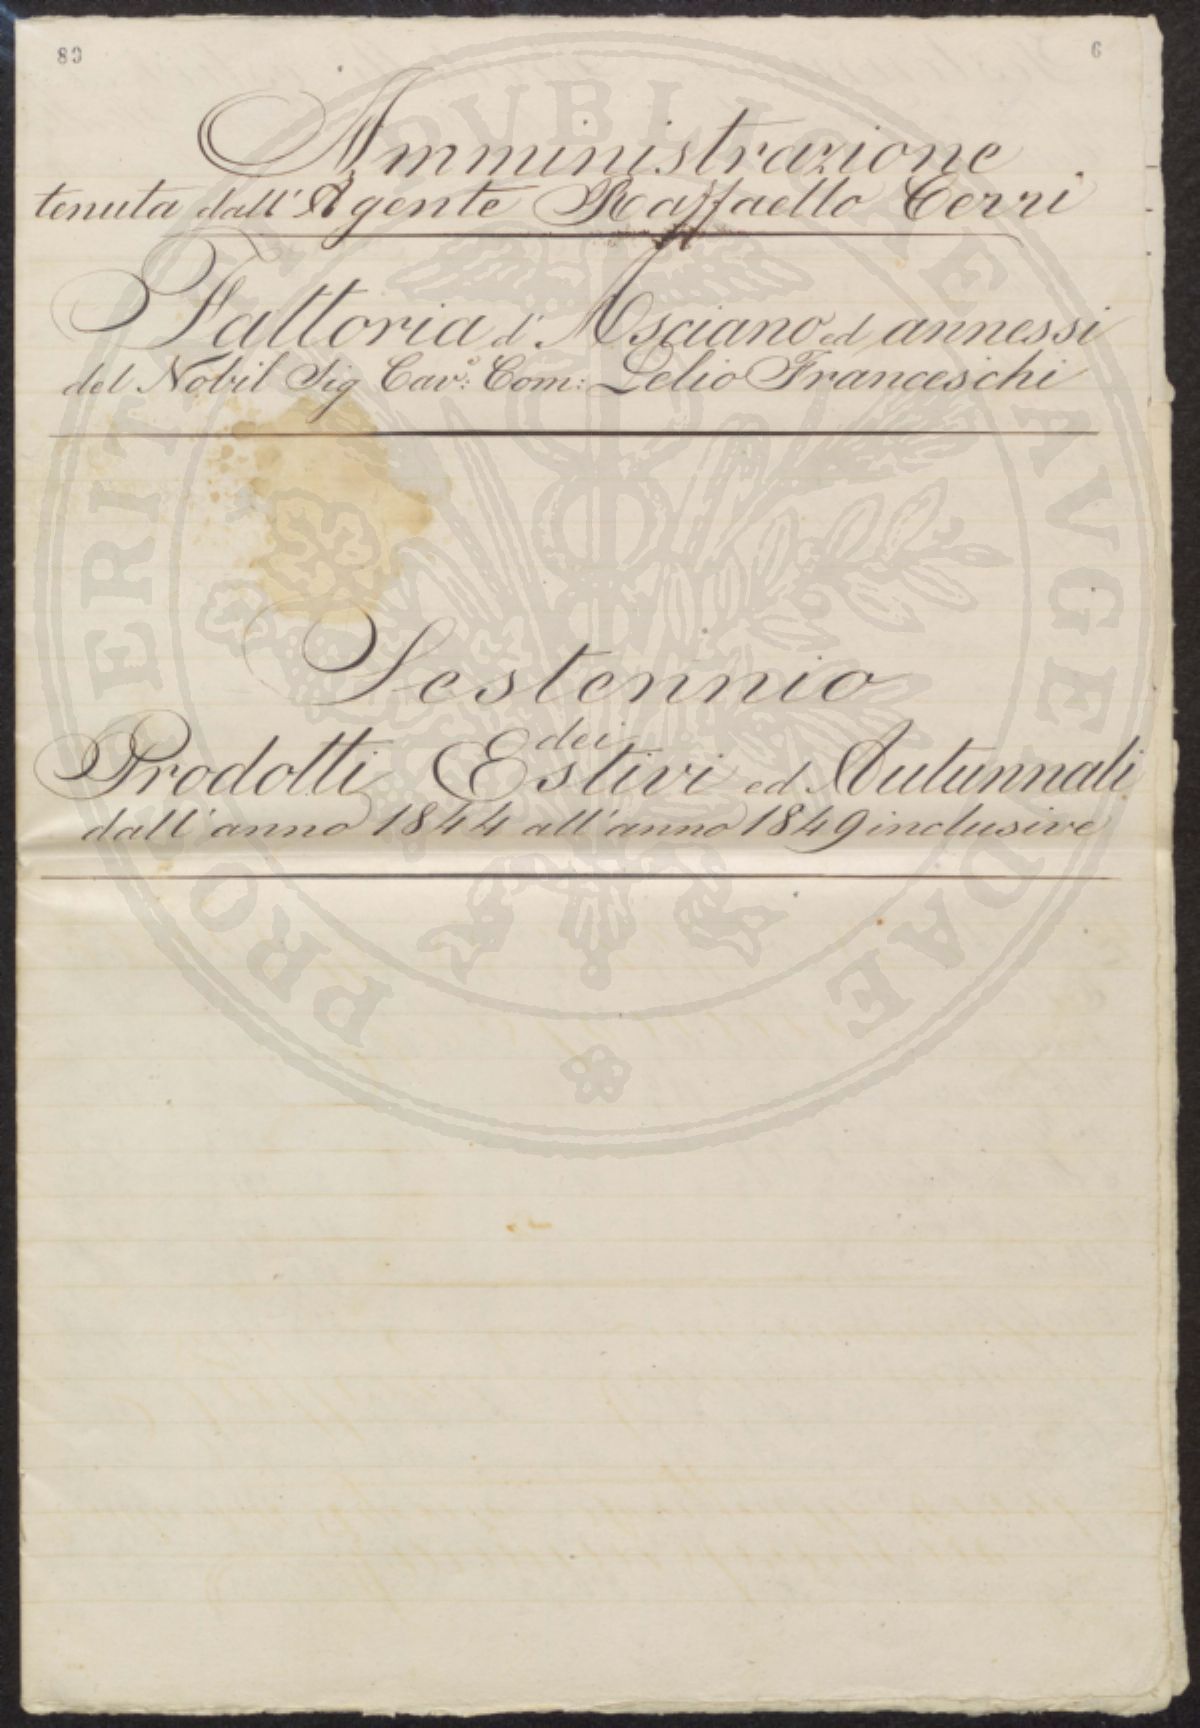 80 6
Amministrazione
tenuta dall'Agente Raffaello Cerri
Fattoria d'Asciano ed annessi
del Nobil Sig Cav:º Com: Lelio Franceschi
Sestennio
dei
Prodotti Estivi ed Autunnali
dall'anno 1844 all'anno 1849 inclusive
PROSPERITATI PVBLICAE AVGENDAE